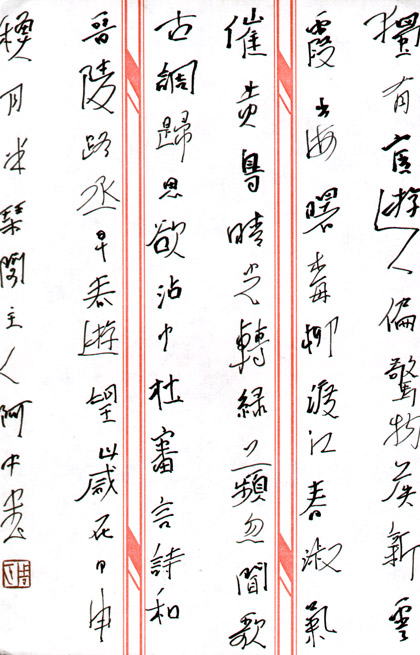 獨有宦遊人偏驚物候新雲
霞出海曙梅柳渡江春淑氣
催黄鳥晴光轉緑蘋忽聞歌
古調歸思欲沾巾杜審言詩和
晉陵路丞早春遊望歲在甲申
月半琴閣主人阿中書